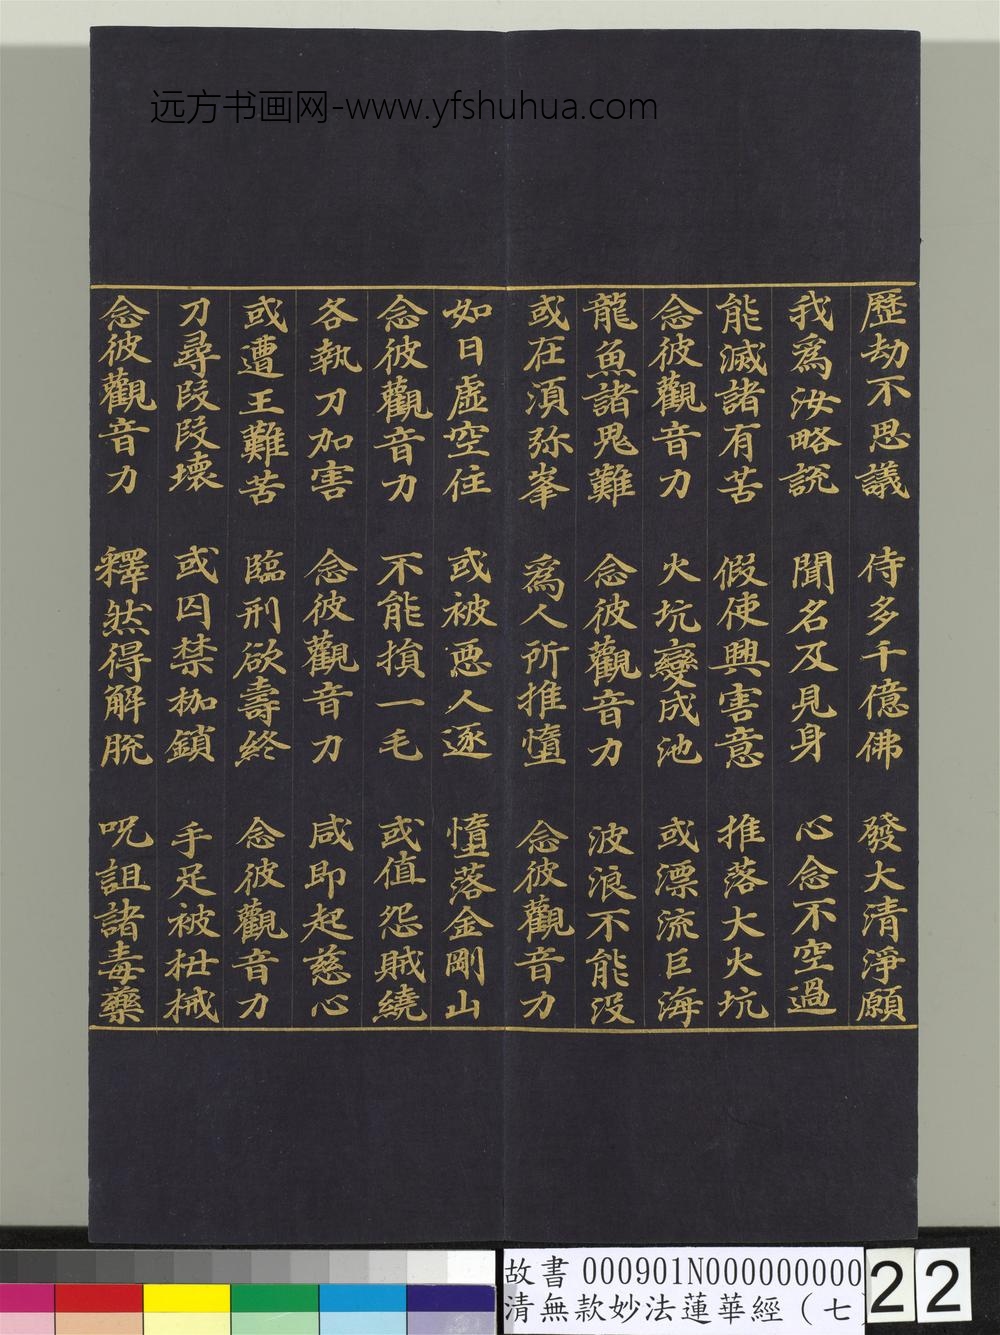 远方书画网-www.yfshuhua.com
歷劫不思議 侍多千億佛 發大清淨願
我為汝略說 聞名及見身 心念不空過
能滅諸有苦 假使興害意 推落大火坑
念彼觀音力 火坑變成池 或漂流巨海
龍魚諸鬼難 念彼觀音力 波浪不能沒
或在湏弥峯 為人所推墮 念彼觀音力
如日虛空住 或被惡人逐 墮落金剛山
念彼觀音力 不能損一毛 或值怨賊繞
各執刀加害 念彼觀音力 咸即起慈心
或遭王難苦 臨刑欲壽終 念彼觀音力
刀尋段段壞 或囚禁枷鎖 手足被杻械
念彼觀音力 釋然得解脫 呪詛諸毒藥
故書 000901N000000000
清無款妙法蓮華經（七）
22